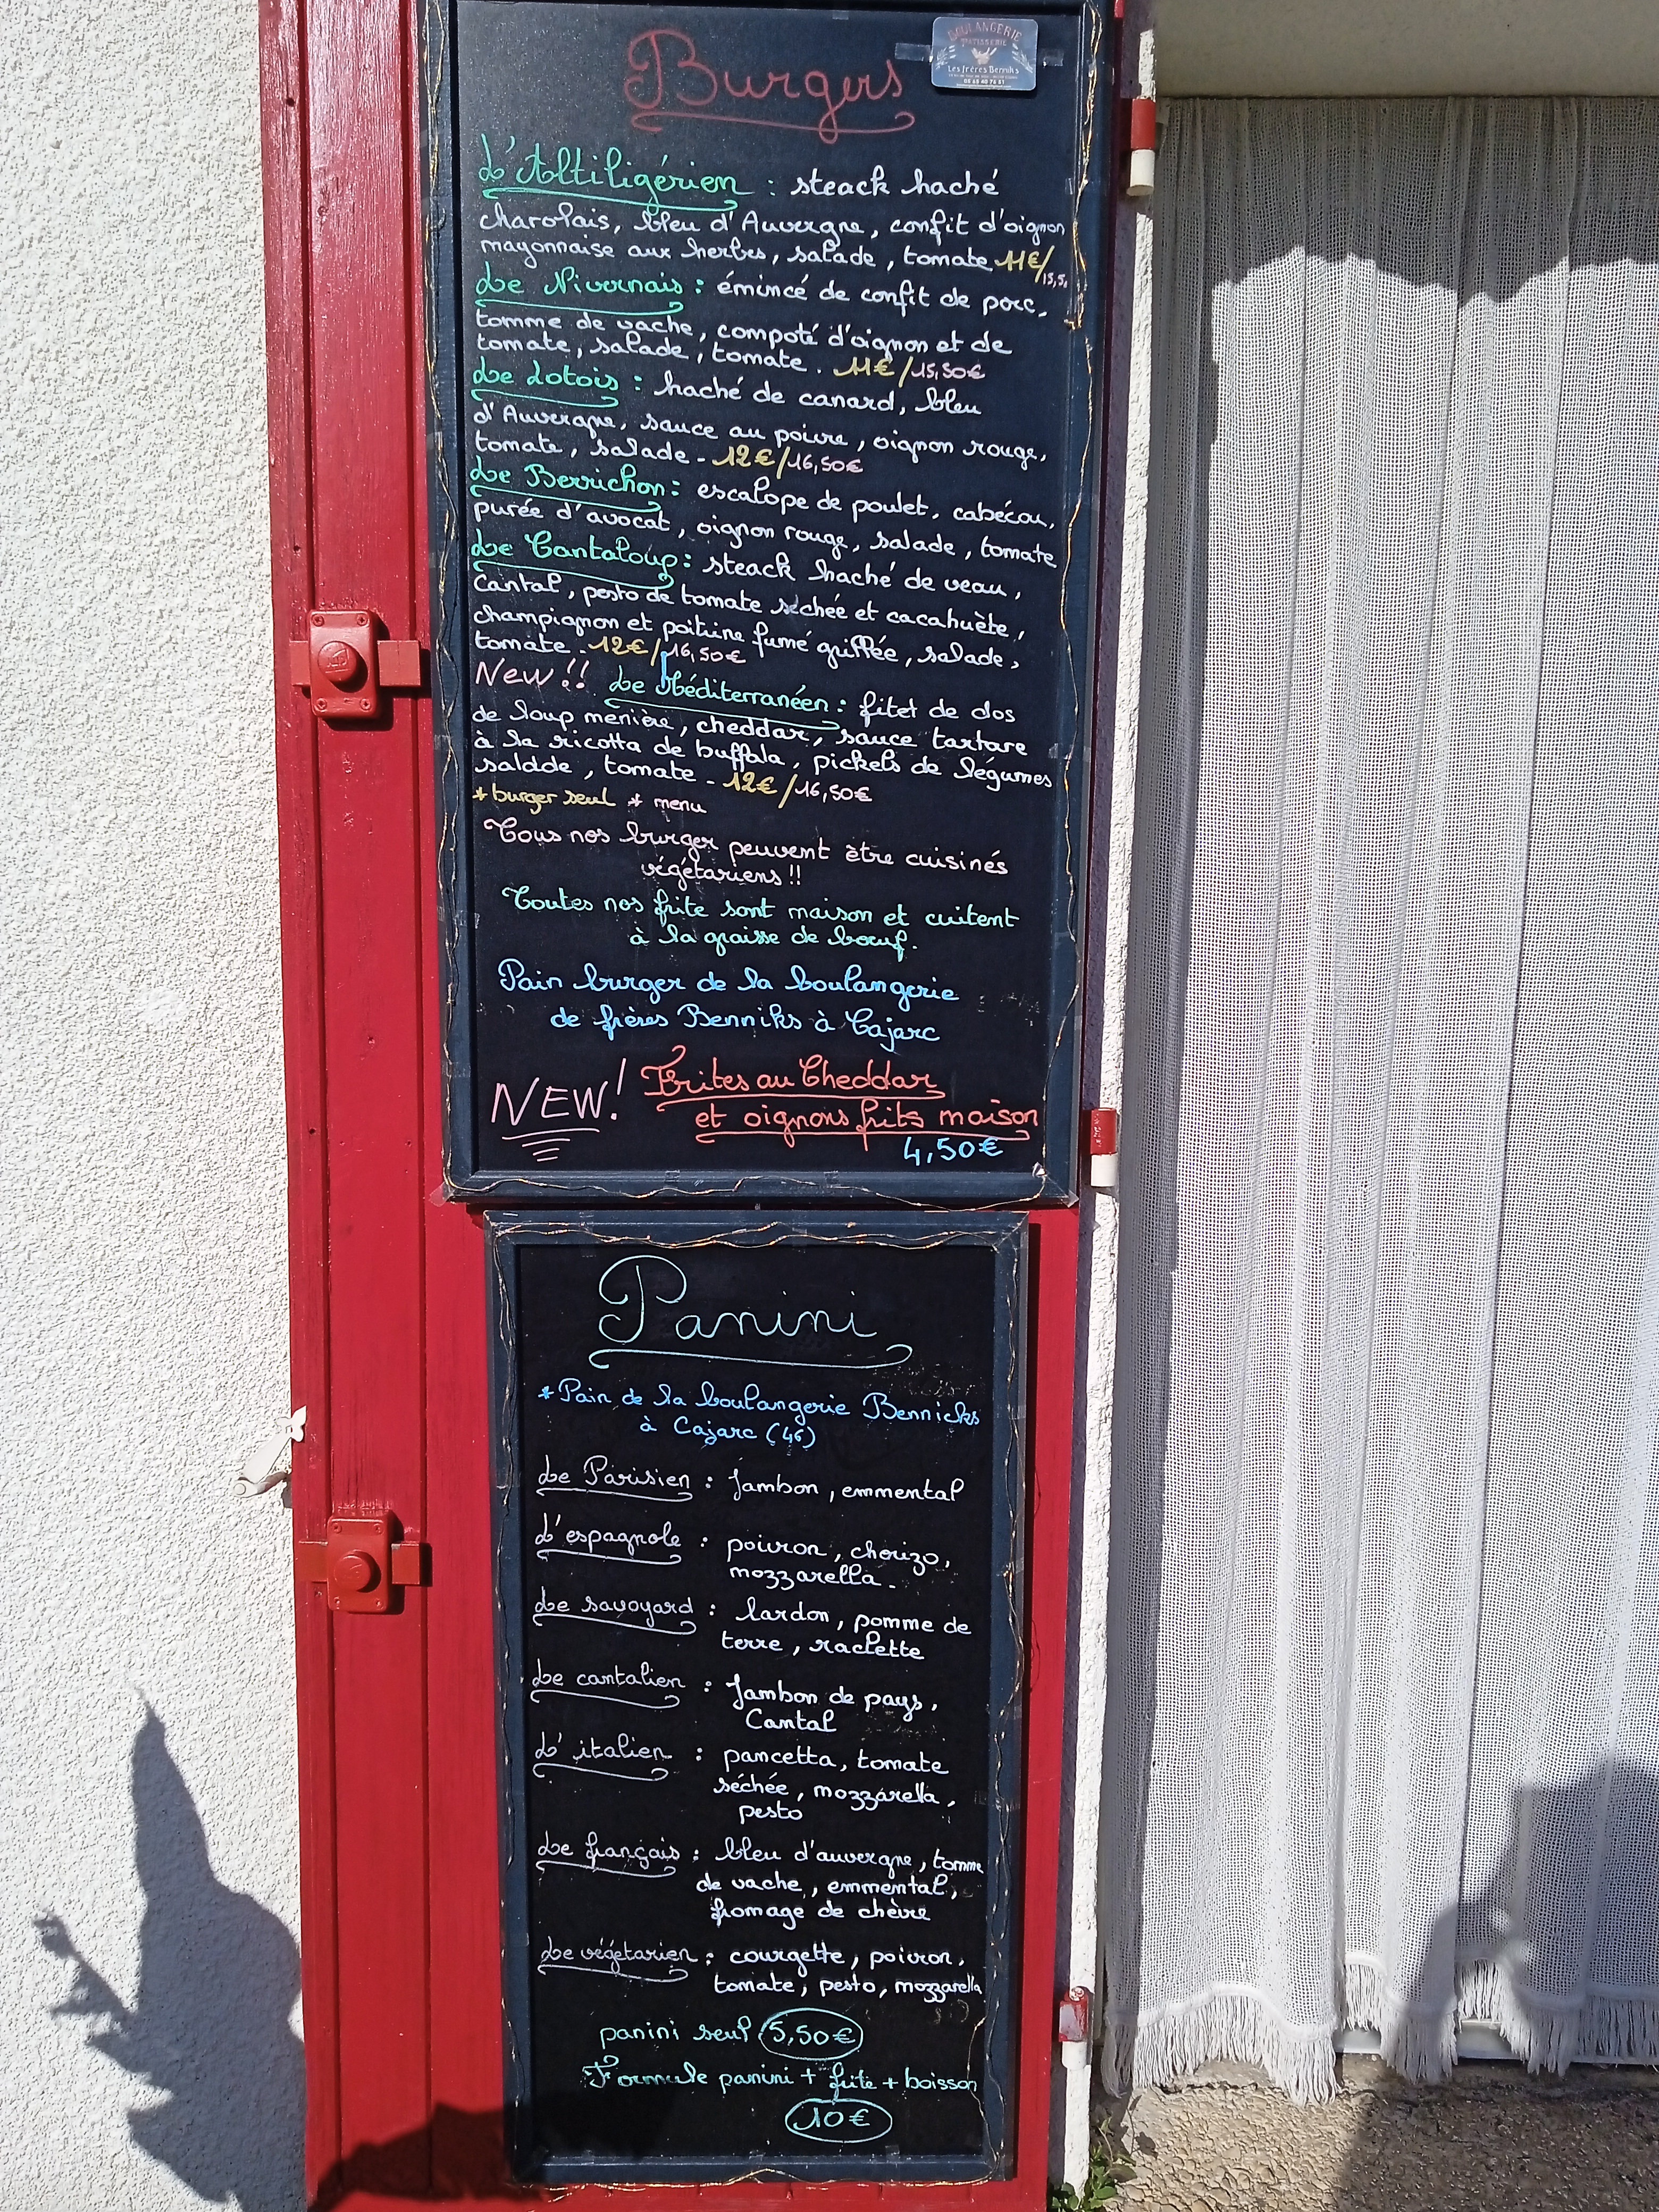 Burgers
BOULANGERIE
PATISSERIE
Les frères Benniks
05 65 40 76 51
L'Altiligérien : steack haché
charolais, bleu d'Auvergne, confit d'oignon
mayonnaise aux herbes, salade, tomate 11€/15,5
Le Nivernais : émincé de confit de porc,
tomme de vache, compoté d'oignon et de
tomate, salade, tomate. 11€/15,50€
Le Lotois : haché de canard, bleu
d'Auvergne, sauce au poivre, oignon rouge,
tomate, salade - 12€/16,50€
Le Berrichon : escalope de poulet, cabécou,
purée d'avocat, oignon rouge, salade, tomate
Le Cantaloup : steack haché de veau,
Cantal, pesto de tomate séchée et cacahuète,
champignon et poitrine fumé grillée, salade,
tomate - 12€/16,50€
New!! Le Méditerranéen : filet de dos
de loup menière, cheddar, sauce tartare
à la ricotta de buffala, pickels de légumes
saldde, tomate - 12€/16,50€
* burger seul * menu
Tous nos burger peuvent être cuisinés
végétariens !!
Toutes nos frite sont maison et cuitent
à la graisse de boeuf.
Pain burger de la boulangerie
de frères Benniks à Cajarc
NEW! Frites au Cheddar
et oignons frits maison
4,50€
Panini
* Pain de la boulangerie Bennicks
à Cajarc (46)
Le Parisien : Jambon, emmental
L'espagnole : poivron, chorizo,
mozzarella.
Le savoyard : lardon, pomme de
terre, raclette
Le cantalien : Jambon de pays,
Cantal
L'italien : pancetta, tomate
séchée, mozzarella,
pesto
Le français : bleu d'auvergne, tomme
de vache, emmental,
fromage de chèvre
Le végétarien : courgette, poivron,
tomate, pesto, mozzarella
panini seul 5,50€
Formule panini + frite + boisson
10€